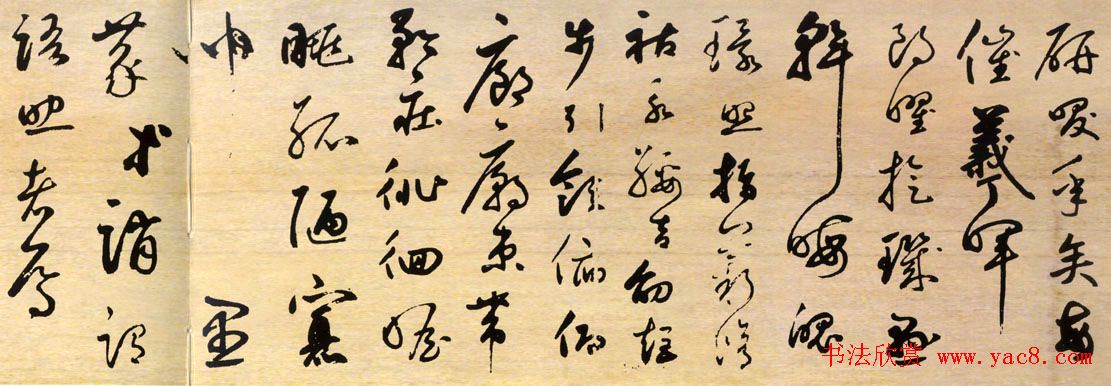 研咲年矢每
催羲暉
朗曜旋璣懸
斡晦魄
環照指薪修
祜永綏吉劭矩
步引領俯仰
廊廟束帶
矜莊徘徊瞻
眺孤陋寡
聞愚
蒙等誚謂
語助者焉
书法欣赏 www.yac8.com